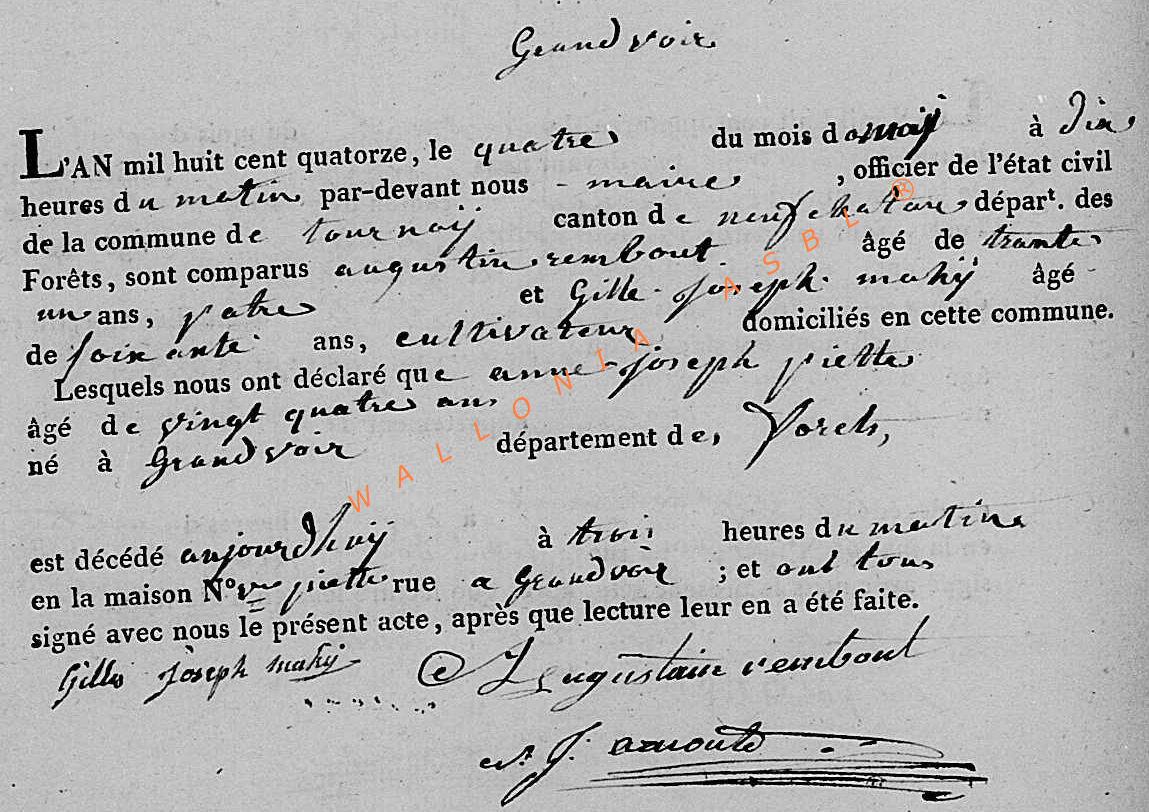 Grandvoir
L'AN mil huit cent quatorze, le quatre du mois de maij à dix
heures du matin par-devant nous - maire , officier de l'état civil
de la commune de tournaij canton de neufchatau dépar^t. des
Forêts, sont comparus augustin rembout. âgé de trante
un ans, patre et Gille joseph mahij âgé
de soixante ans, cultivateur domiciliés en cette commune.
Lesquels nous ont déclaré que anne joseph piette
âgé de vingt quatre an
né à Grandvoir département de,
est décédé aujourdhuij à trois heures du matin
en la maison N° piette rue a Grandvoir ; et ont tous
signé avec nous le présent acte, après que lecture leur en a été faite.
Gille joseph mahij augustain rembout
J: arnould
WALLONIA ASBL ®